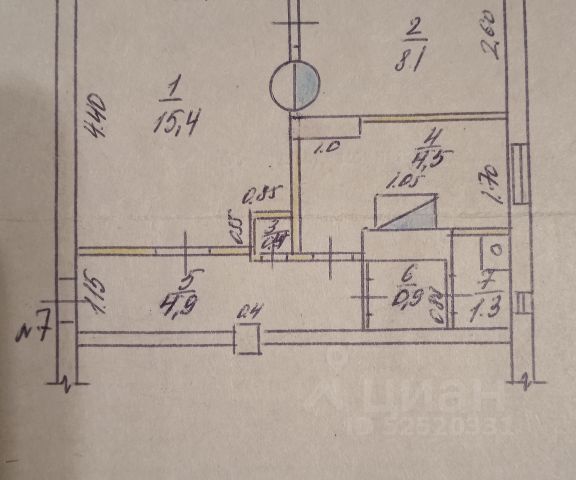 2
8.1
2,60
1
15,4
4.40
1.0
4
4,5
1.05
1.70
0.85
0.55
3
0,4
5
4,9
1.15
6
0,9
7
1.3
0.4
№7
ЦИАН
ID 52520331